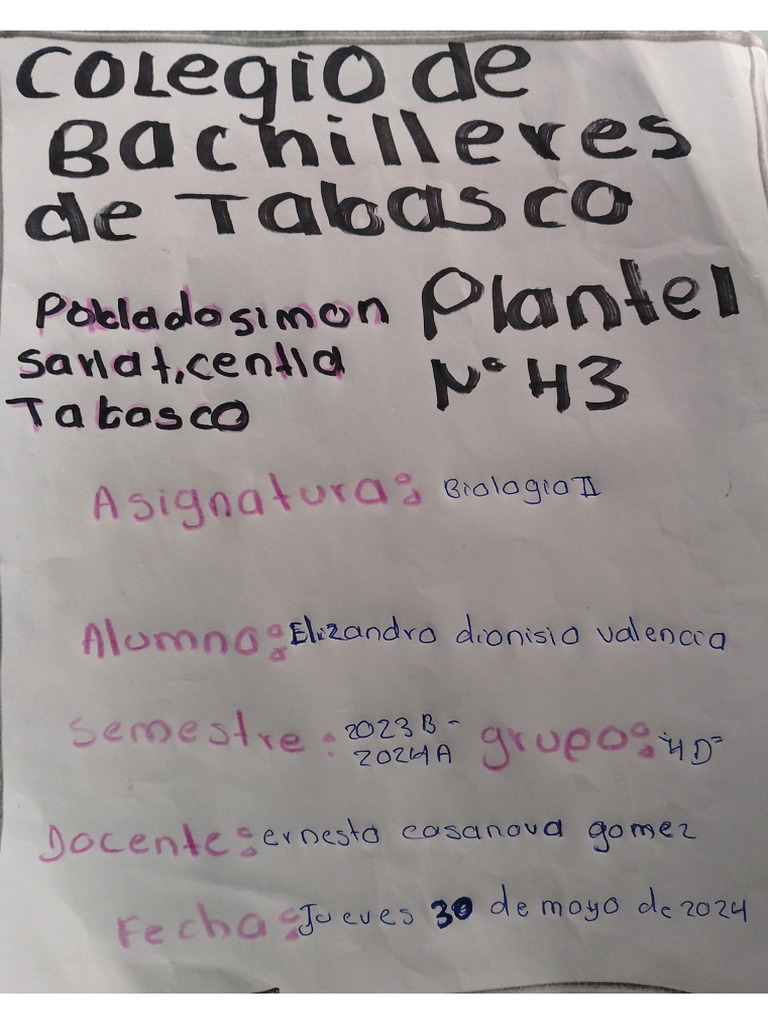 Colegio de
Bachilleres
de Tabasco
Poblado simon
sarlat, centla
Tabasco
Plantel
N° 43
Asignatura: Biologia II
Alumno: Elizandro dionisio valencia
Semestre: 2023 B -
2024 A
grupo: "4 D"
Docente: ernesto casanova gomez
Fecha: Jueves 30 de mayo de 2024